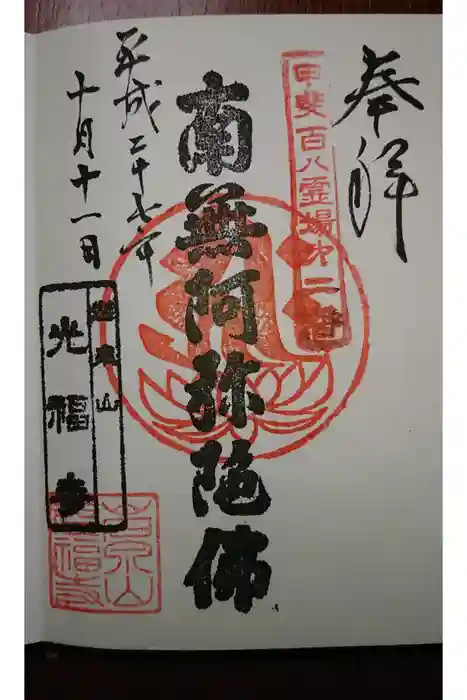 奉拝
甲斐百八霊場第二番
南無阿弥陀佛
平成二十七年
十月十一日
光福寺